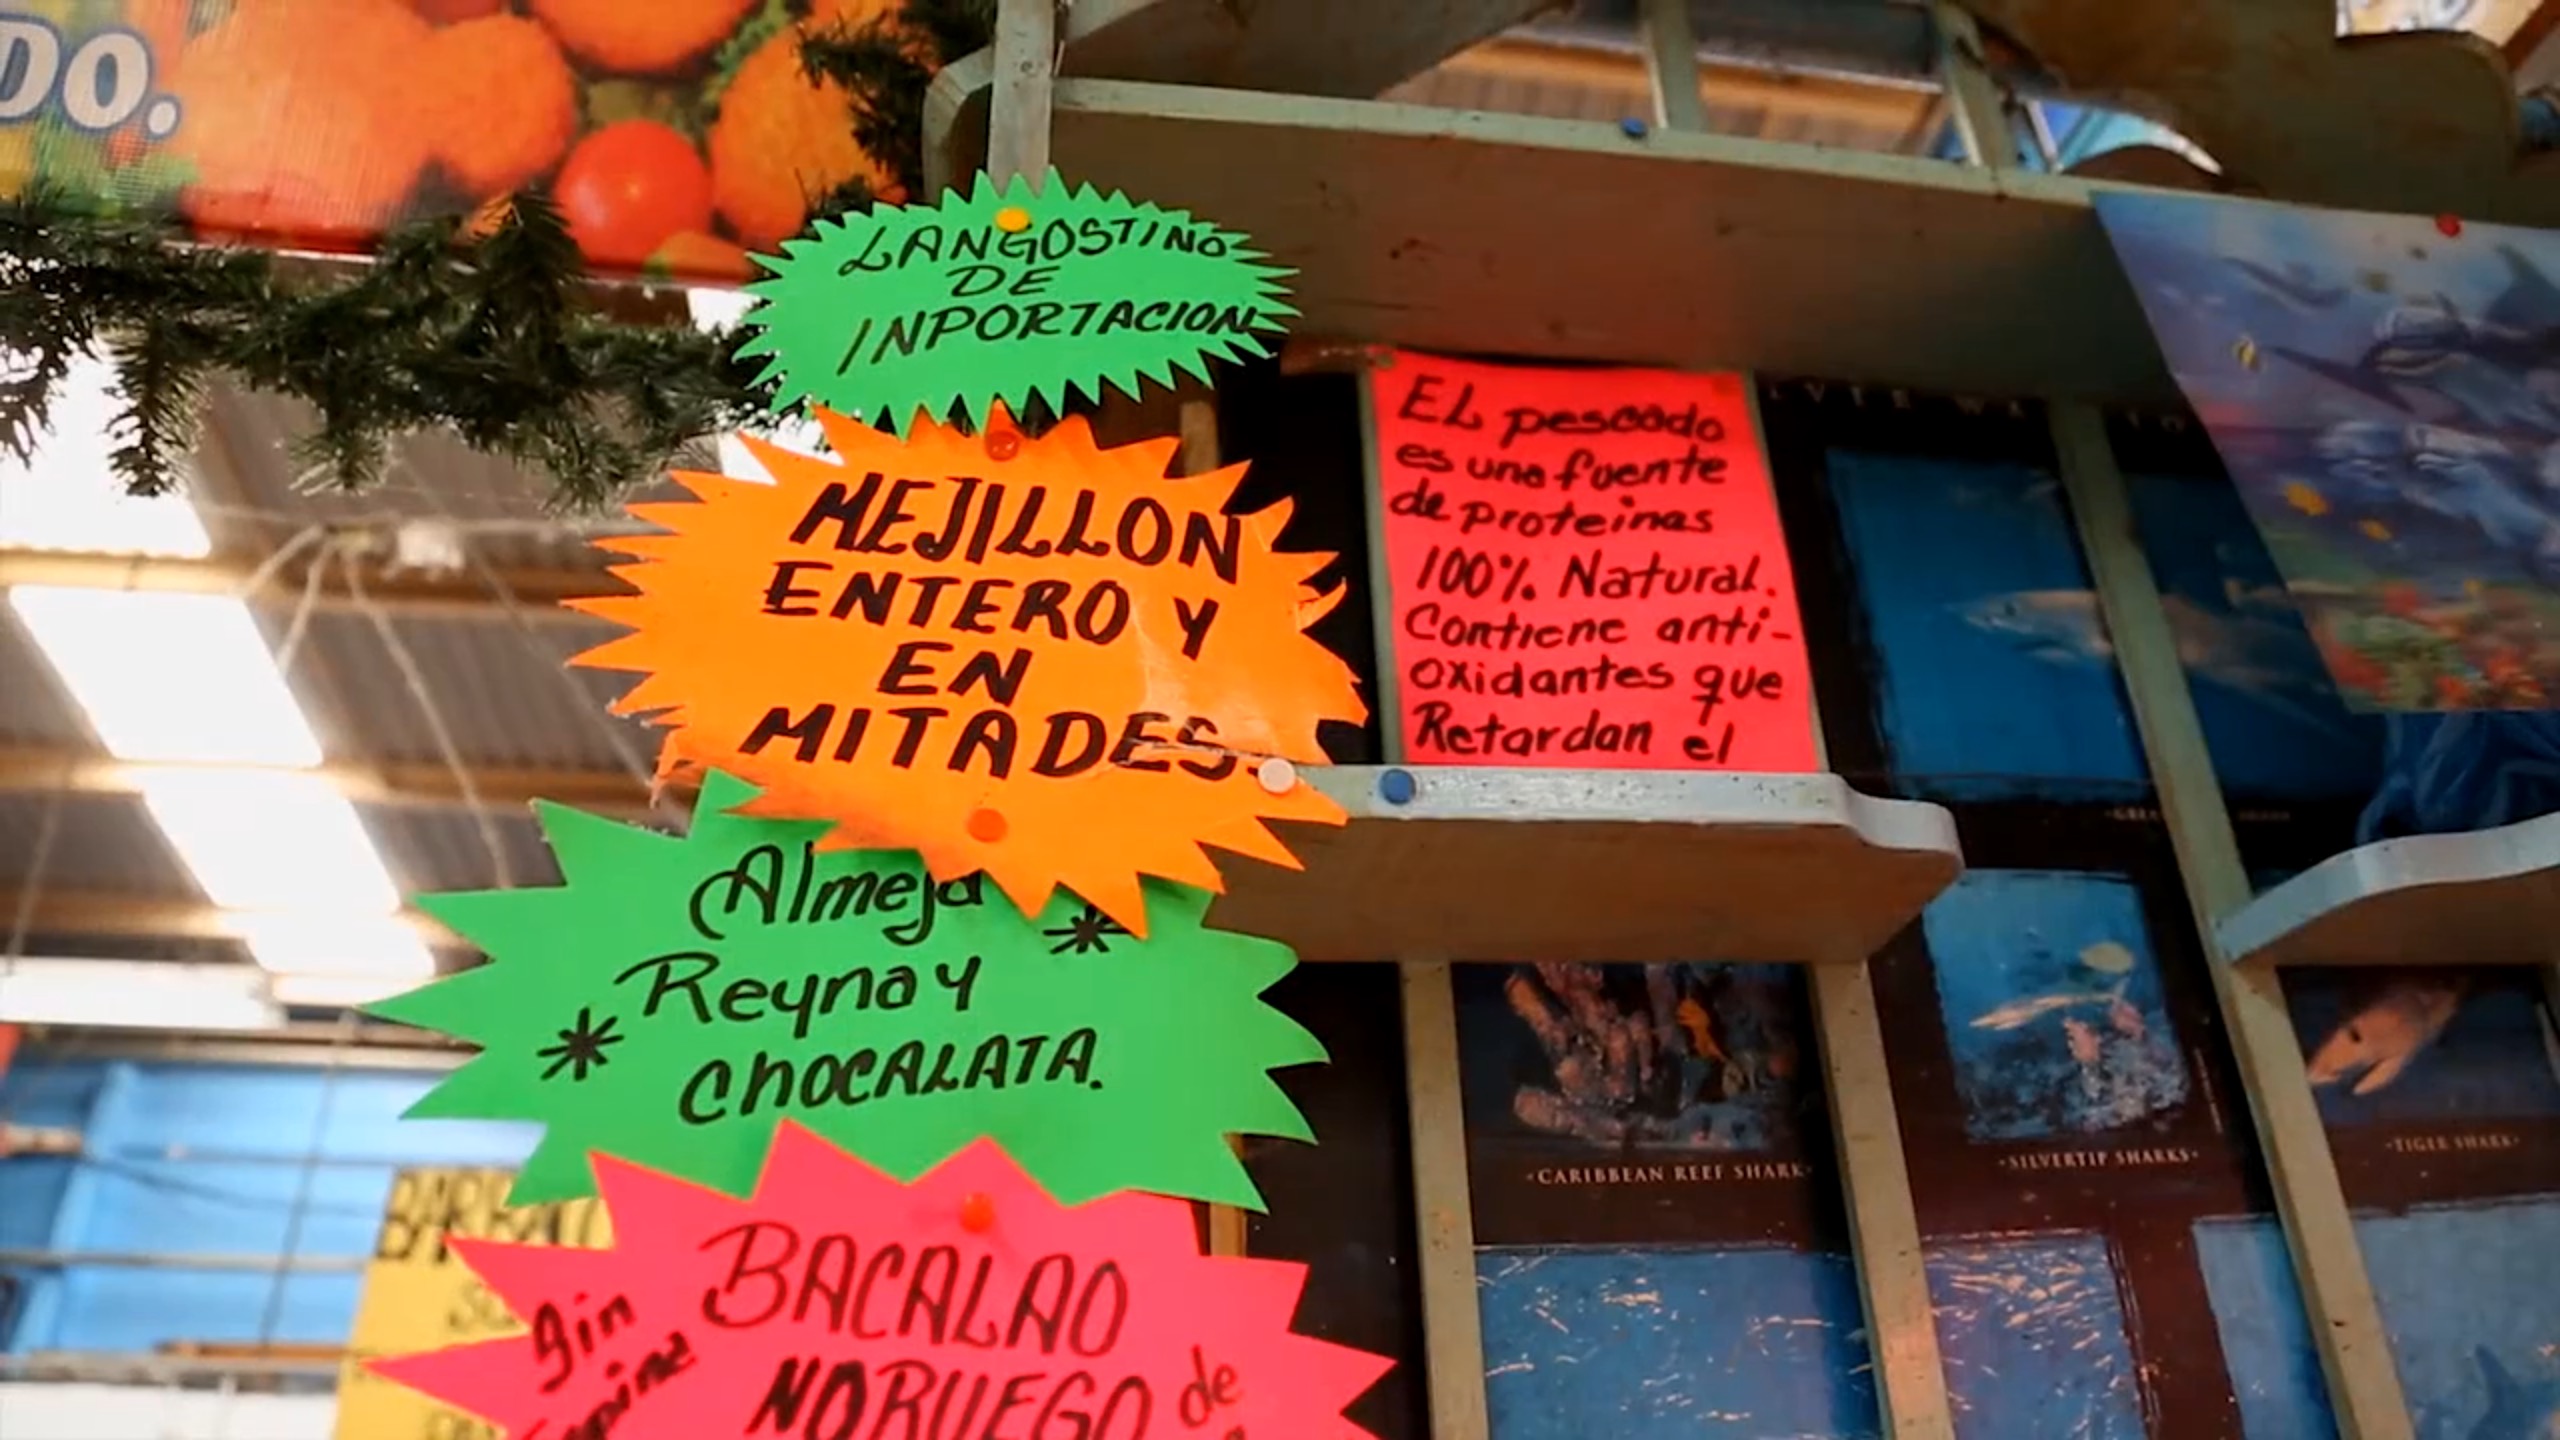 DO.
LANGOSTINO
DE
INPORTACION
MEJILLON
ENTERO Y
EN
MITADES.
Almeja
Reyna y
CHOCALATA.
BACALAO
NORUEGO de
Sin
EL pescado
es una fuente
de proteinas
100% Natural.
Contiene anti-
oxidantes que
Retardan el
·CARIBBEAN REEF SHARK·
·SILVERTIP SHARKS·
·TIGER SHARK·